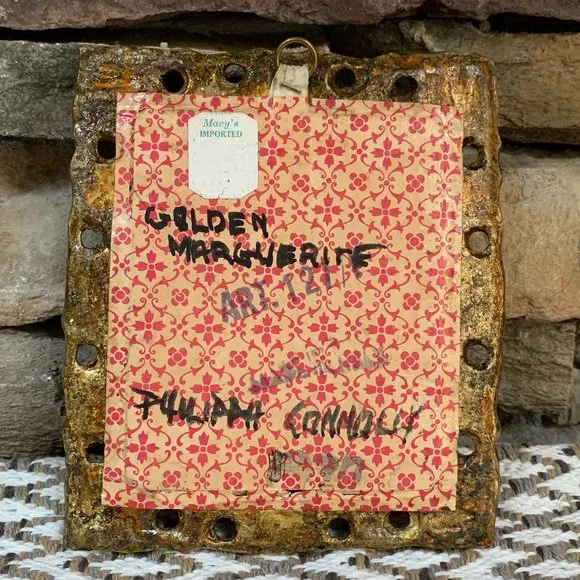 Macy's
IMPORTED
GOLDEN
MARGUERITE
ART.
PHILIPPA CONNOLLY